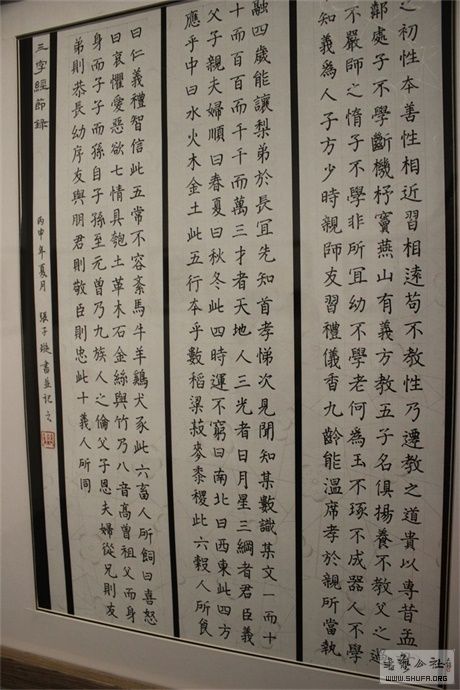 之初性本善性相近習相遠苟不教性乃遷教之道貴以專昔孟
鄰處子不學斷機杼竇燕山有義方教五子名俱揚養不教父之過
不嚴師之惰子不學非所宜幼不學老何為玉不琢不成器人不學
知義為人子方少時親師友習禮儀香九齡能溫席孝於親所當執
融四歲能讓梨弟於長宜先知首孝悌次見聞知某數識某文一而十
十而百百而千千而萬三才者天地人三光者日月星三綱者君臣義
父子親夫婦順曰春夏曰秋冬此四時運不窮曰南北曰西東此四方
應乎中曰水火木金土此五行本乎數稻粱菽麥黍稷此六穀人所食
曰仁義禮智信此五常不容紊馬牛羊鷄犬豕此六畜人所飼曰喜怒
曰哀懼愛惡欲七情具匏土革木石金絲與竹乃八音高曾祖父而身
身而子子而孫自子孫至元曾乃九族人之倫父子恩夫婦從兄則友
弟則恭長幼序友與朋君則敬臣則忠此十義人所同
三字經節錄
丙申年夏月 張子璇書並記之
WWW.SHUFA.ORG